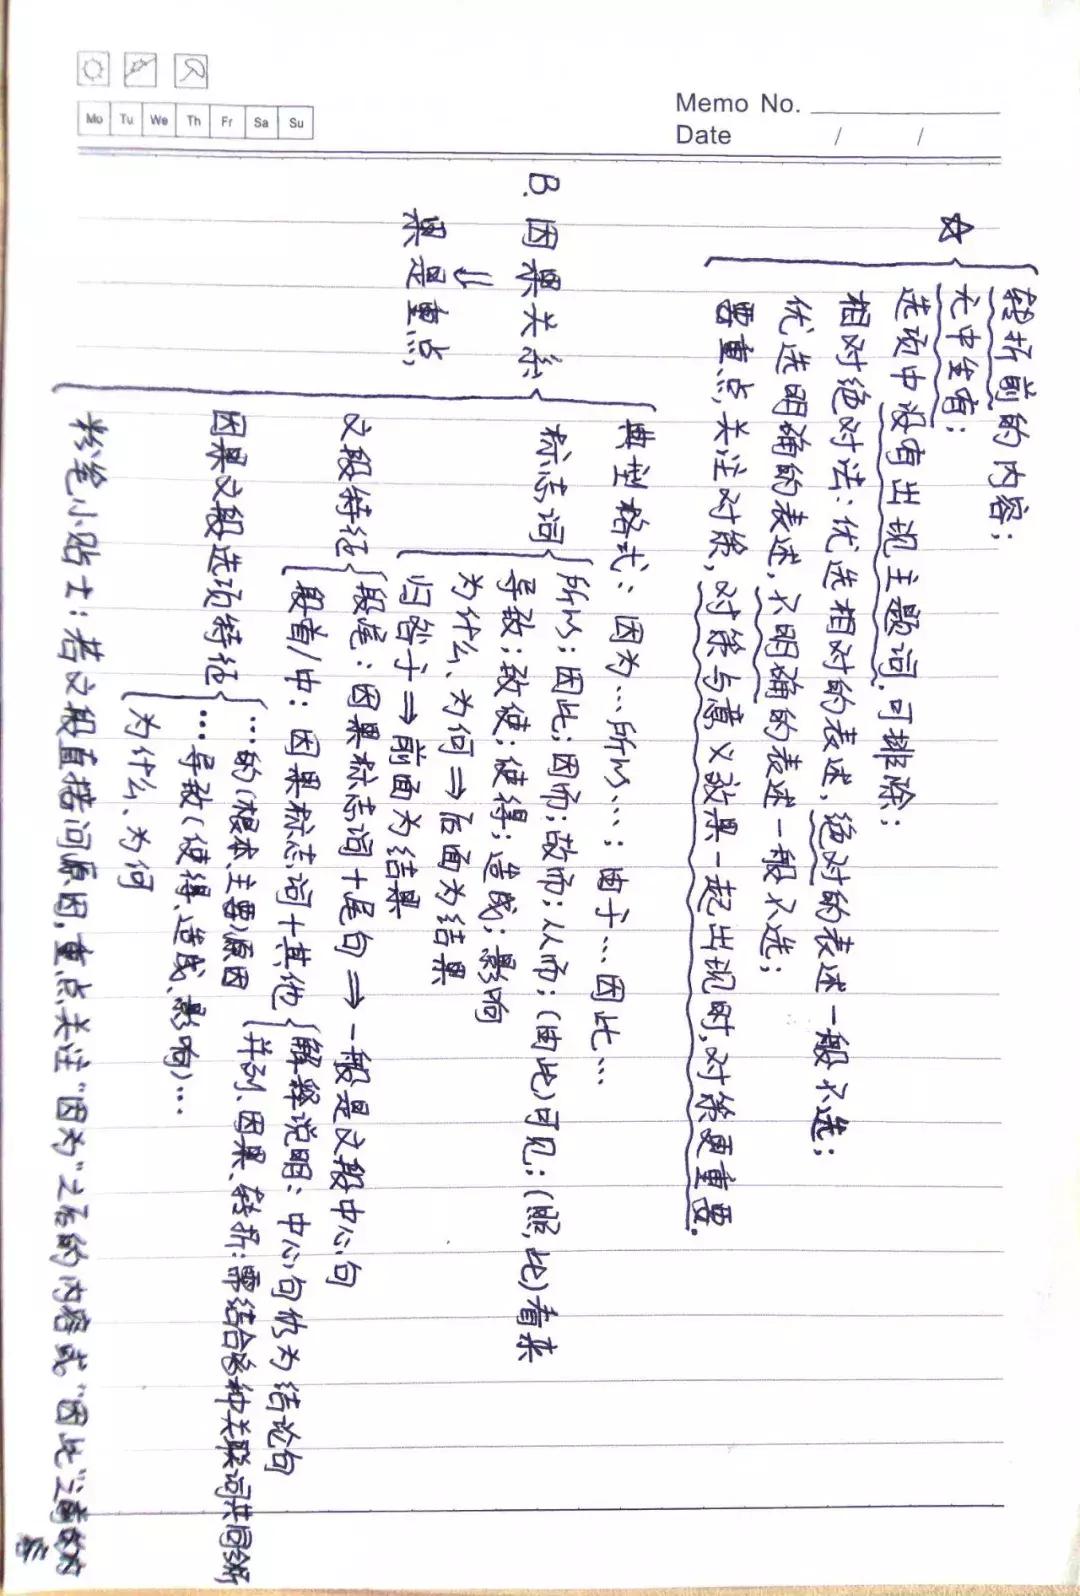 Mo Tu We Th Fr Sa Su
Memo No.
Date / /
☆
转折前的内容;
无中生有:
选项中没有出现主题词,可排除;
相对绝对法:优选相对的表述,绝对的表述一般不选;
优选明确的表述,不明确的表述一般不选;
要重点关注对策,对策与意义效果一起出现时,对策更重要.
B. 因果关系
⇓
果是重点
典型格式:因为…所以…;由于…因此…
标志词
所以;因此;因而;故而;从而;(由此)可见;(照此)看来
导致;致使;使得;造成;影响
为什么、为何⇒后面为结果
归咎于⇒前面为结果
文段特征
段尾:因果标志词+尾句⇒一般是文段中心句
段首/中:因果标志词+其他
解释说明:中心句仍为结论句
并列、因果、转折:需结合各种关联词共同分析
因果文段选项特征
…的(根本、主要)原因
…导致(使得、造成、影响)…
为什么、为何
粉笔小贴士:若文段直接问原因,重点关注"因为"之后的内容或"因此"之前的内
容